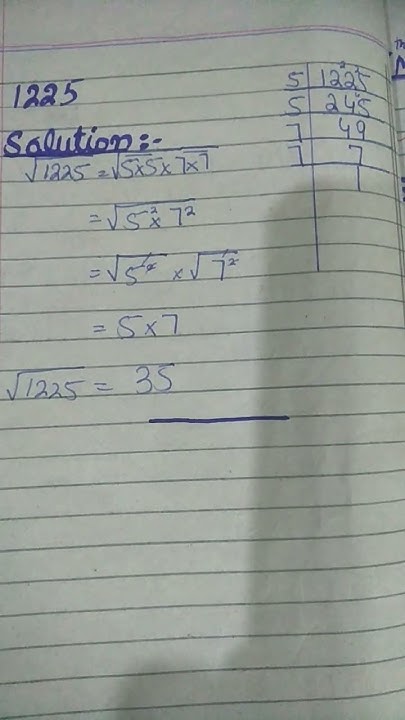 1225
Solution:-
√1225 = √5×5×7×7
= √5²×7²
= √5² × √7²
= 5×7
√1225 = 35
5 | 1225
5 | 245
7 | 49
7 | 7
| 1